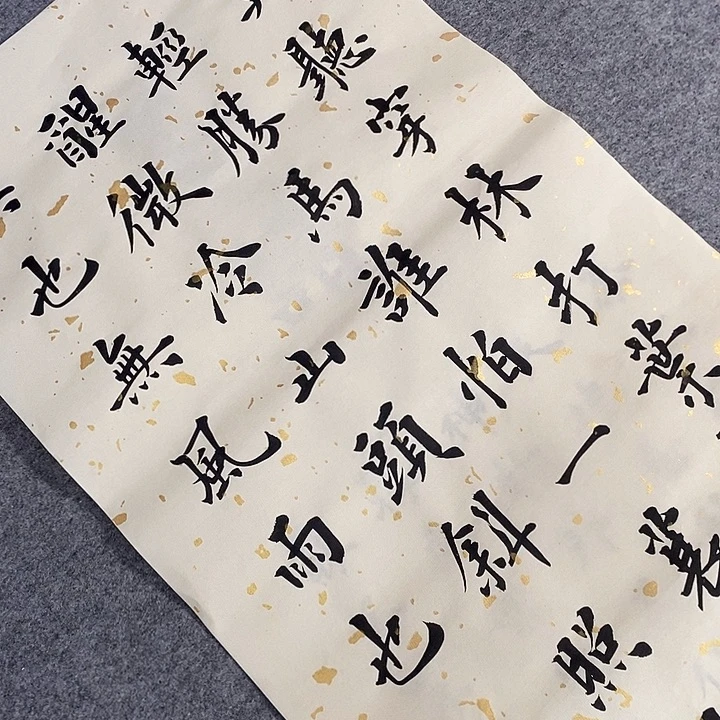 聽穿林打葉
輕勝馬誰怕一蓑
醒微冷山頭斜照
也無風雨也